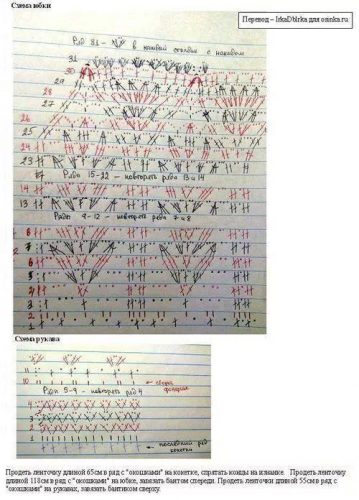 Схема юбки
Перевод – IrkaDbIrka для osinka.ru
Ряд 31 - в каждый столбик с накидом
31
30
29
28
27
26
25
24
23
Ряды 15-22 - повторять ряды 13 и 14
14
13
Ряды 9-12 - повторять ряды 7 и 8
8
7
6
5
4
3
2
1
Схема рукава
11
10
сборка фонарик
Ряды 5-9 - повторять ряд 4
4
3
2
1
последний ряд кокетки
Продеть ленточку длиной 65см в ряд с "окошками" на кокетке, спрятать концы на изнанке. Продеть ленточку
длиной 118см в ряд с "окошками" на юбке, завязать бантом спереди. Продеть ленточки длиной 55см в ряд с
"окошками" на рукавах, завязать бантиком сверху.